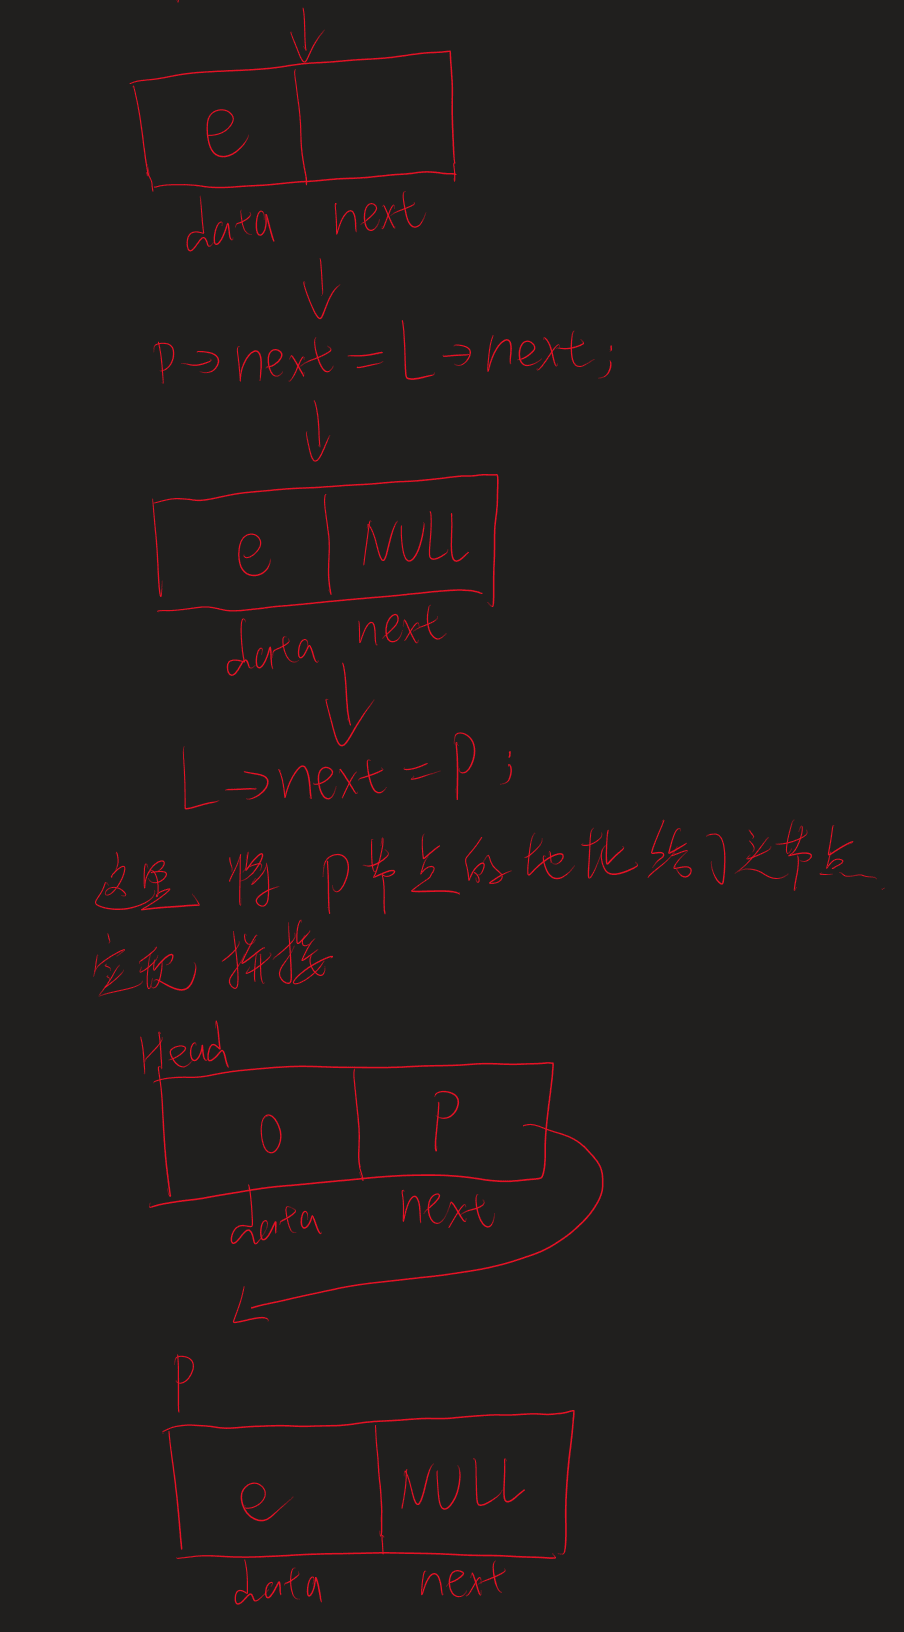 e
data next
P→next=L→next;
e NULL
data next
L→next=P;
这里将P节点的地址给了头节点
实现拼接
Head
0 P
data next
P
e NULL
data next